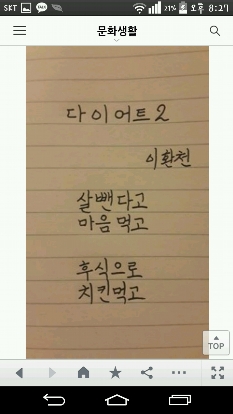 SKT 21% 오후 8:27
문화생활
다이어트2
이환천
살뺀다고
마음먹고
후식으로
치킨먹고
TOP